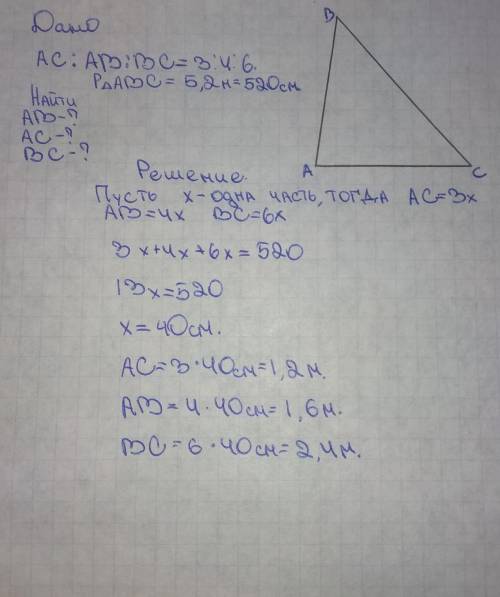 Дано
AC : AB : BC = 3 : 4 : 6.
P△ABC = 5,2м = 520см
Найти
AB - ?
AC - ?
BC - ?
B
A
C
Решение.
Пусть x - одна часть, тогда AC = 3x
AB = 4x BC = 6x
3x + 4x + 6x = 520
13x = 520
x = 40см.
AC = 3 · 40см = 1,2м.
AB = 4 · 40см = 1,6м.
BC = 6 · 40см = 2,4м.